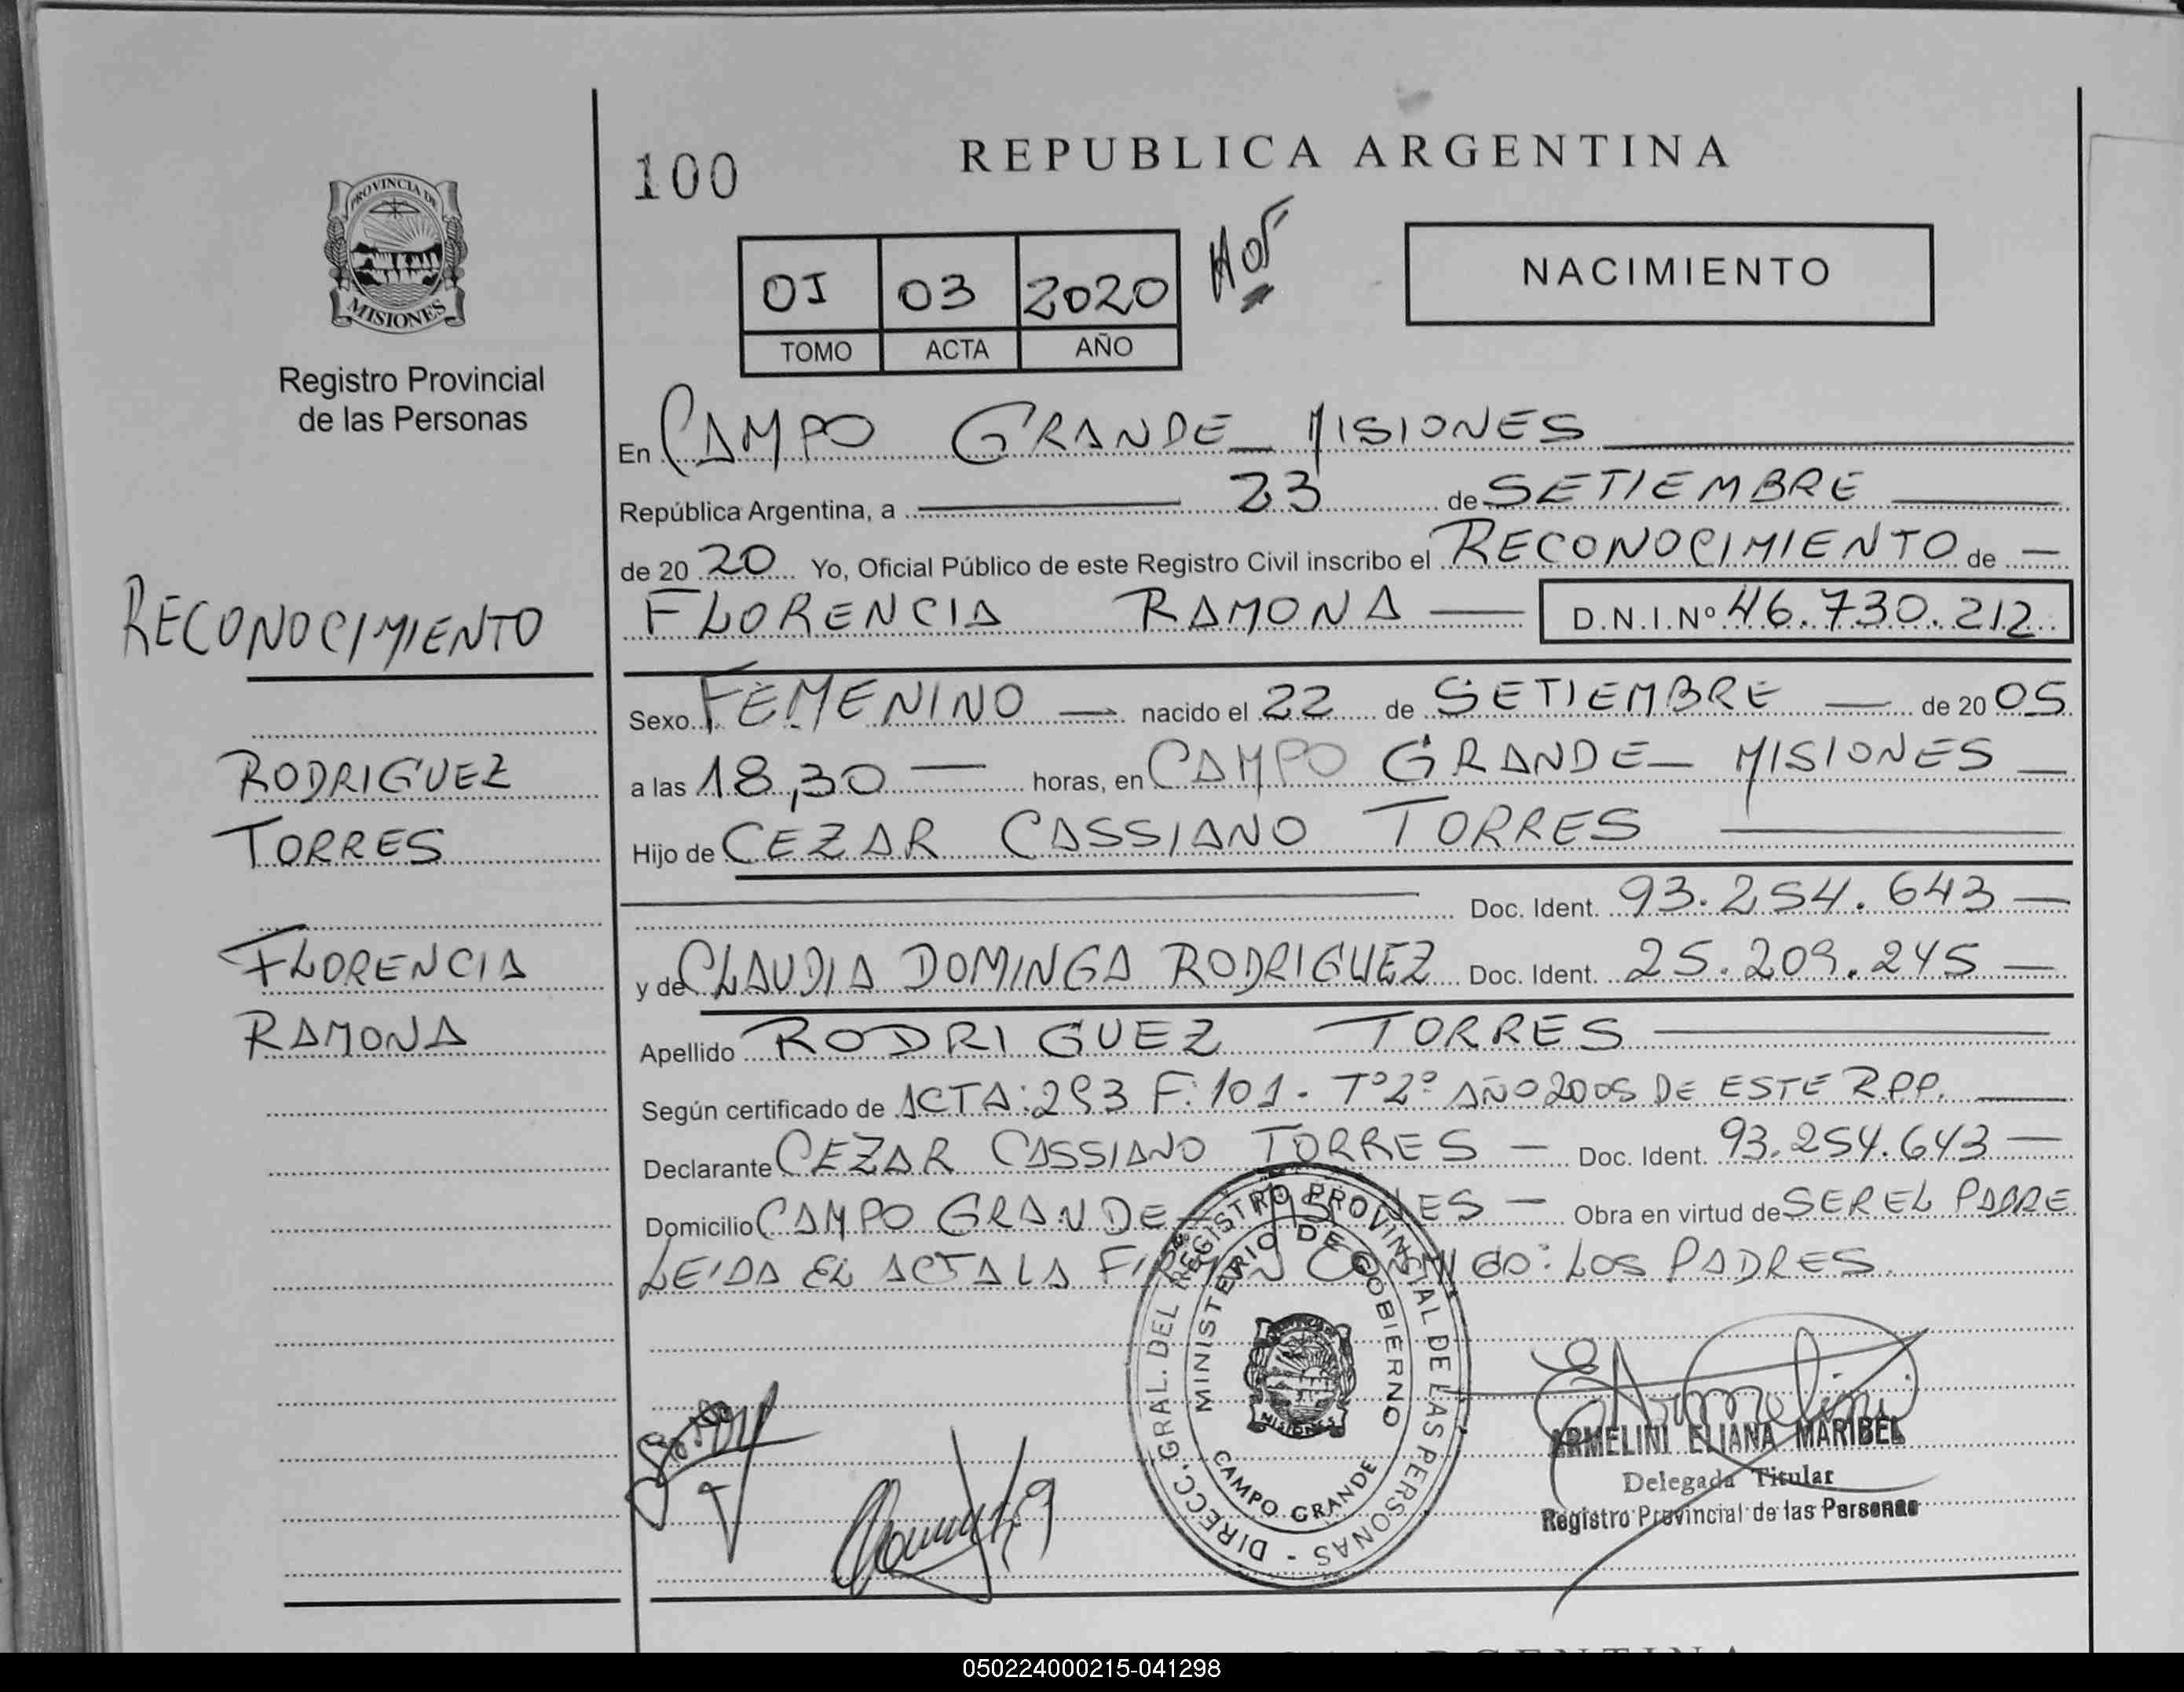 REPUBLICA ARGENTINA
100
PROVINCIA DE
MISIONES
Registro Provincial
de las Personas
01 03 2020
TOMO ACTA AÑO
NACIMIENTO
En CAMPO GRANDE - MISIONES
República Argentina, a 23 de SETIEMBRE
de 20 20 Yo, Oficial Público de este Registro Civil inscribo el RECONOCIMIENTO de
FLORENCIA RAMONA D.N.I.Nº 46.730.212
Sexo FEMENINO nacido el 22 de SETIEMBRE de 20 05
a las 18,30 horas, en CAMPO GRANDE - MISIONES
Hijo de CEZAR CASSIANO TORRES
Doc. Ident. 93.254.643
y de CLAUDIA DOMINGA RODRIGUEZ Doc. Ident. 25.209.245
Apellido RODRIGUEZ TORRES
Según certificado de ACTA: 293 F: 101 - Tº 2º AÑO 2005 DE ESTE R.P.P.
Declarante CEZAR CASSIANO TORRES Doc. Ident. 93.254.643
Domicilio CAMPO GRANDE - MISIONES Obra en virtud de SER EL PADRE
LEIDA EL ACTA LA FIRMAN CONMIGO: LOS PADRES
RECONOCIMIENTO
RODRIGUEZ
TORRES
FLORENCIA
RAMONA
DIRECC. GRAL. DEL REGISTRO PROVINCIAL DE LAS PERSONAS -
MINISTERIO DE GOBIERNO
MISIONES
CAMPO GRANDE
ARMELINI ELIANA MARIBEL
Delegada Titular
Registro Provincial de las Personas
050224000215-041298